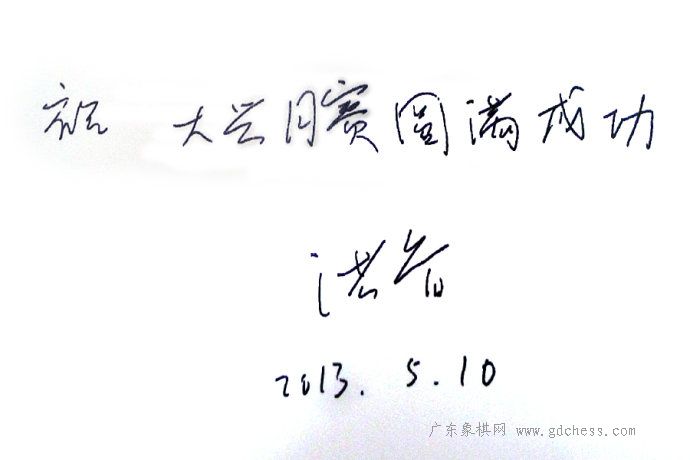 祝 大兴月赛圆满成功
洪智
2013.5.10
广东象棋网 www.gdchess.com